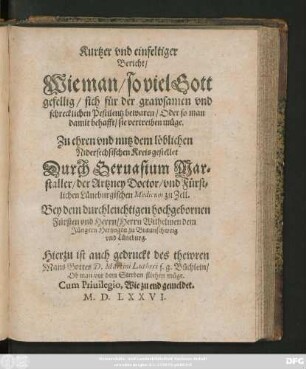 Kurtzer vnd einfeltiger
Bericht/
Wie man/ so viel Gott
gefellig/ sich für der grawsamen vnd
schrecklichen Pestilentz bewaren/ Oder so man
damit behafft/ sie vertreiben müge.
Zu ehren vnd nutz dem löblichen
Nidersechsischen Kreis gestellet
Durch Seruasium Mar-
staller/ der Artzney Doctor/ vnd Fürst-
lichen Lüneburgischen Medicum zu Zell.
Bey dem durchleuchtigen hochgebornen
Fürsten vnd Herrn/ Herrn Wilhelmen dem
Jüngern Hertzogen zu Braunschweig
vnd Lüneburg.
Hierzu ist auch gedruckt des thewren
Mans Gottes D. Martini Lutheri s. g. Büchlein/
Ob man vor dem Sterben fliehen müge.
Cum Priuilegio, Wie zu end gemeldet.
M. D. LXXVI.